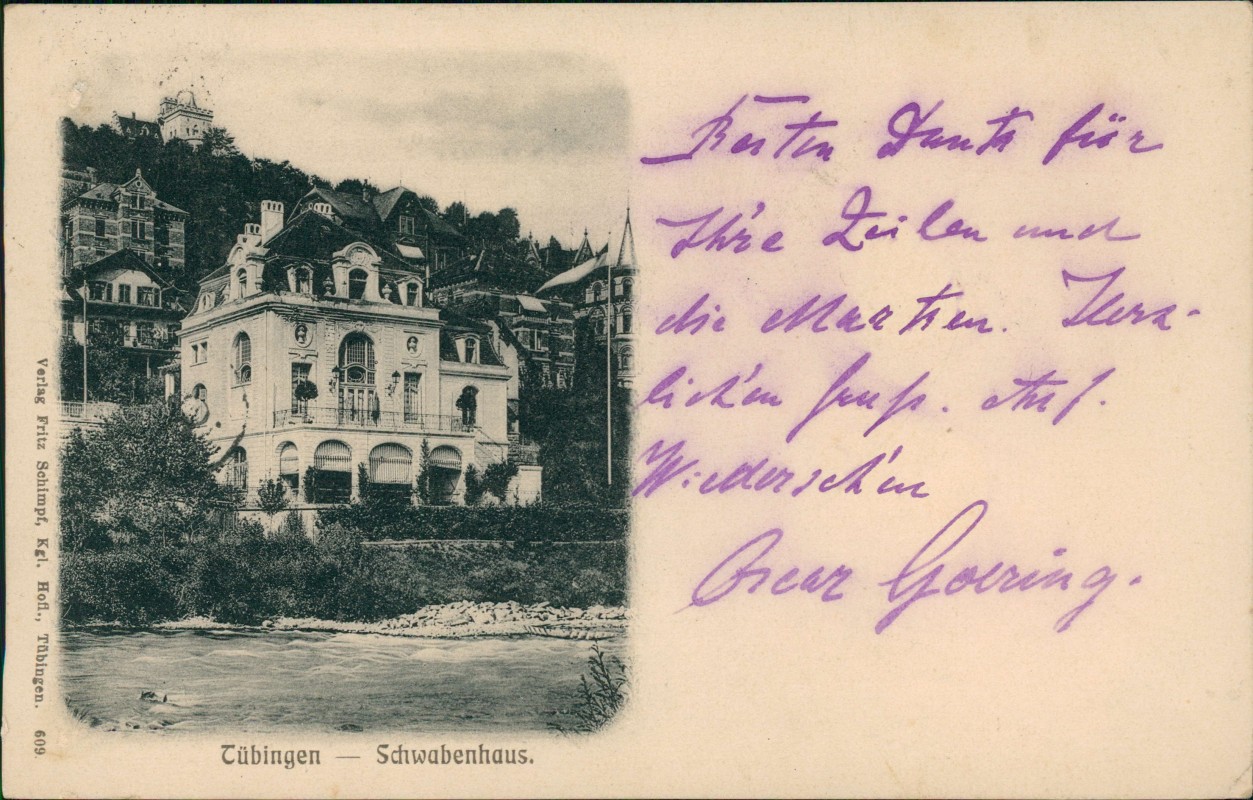 Besten Dank für
Ihre Zeilen und
die Marken. Herz-
lichen Gruß. Auf.
Wiedersehen
Oscar Goering.
Verlag Fritz Schimpf, Kgl. Hofl., Tübingen. 609
Tübingen — Schwabenhaus.